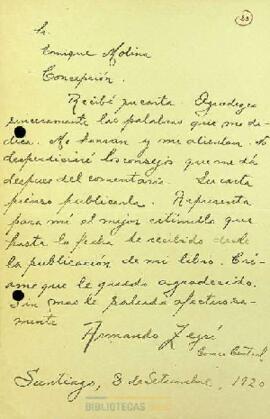 33
Sr.
Enrique Molina
Concepción.
Recibí su carta. Agradezco
sinceramente las palabras que me de-
dica. Me honran y me alientan. No
desperdiciaré los consejos que me dá
despues del comentario. Su carta
pienso publicarla. Representa
para mí el mejor estímulo que
hasta la fecha he recibido desde
la publicación de mi libro. Cré-
ame que le quedo agradecido.
Sin mas le saluda afectuosa-
mente
Armando Zegrí
Correo Central
Santiago, 3 de Setiembre, 1920
BIBLIOTECAS